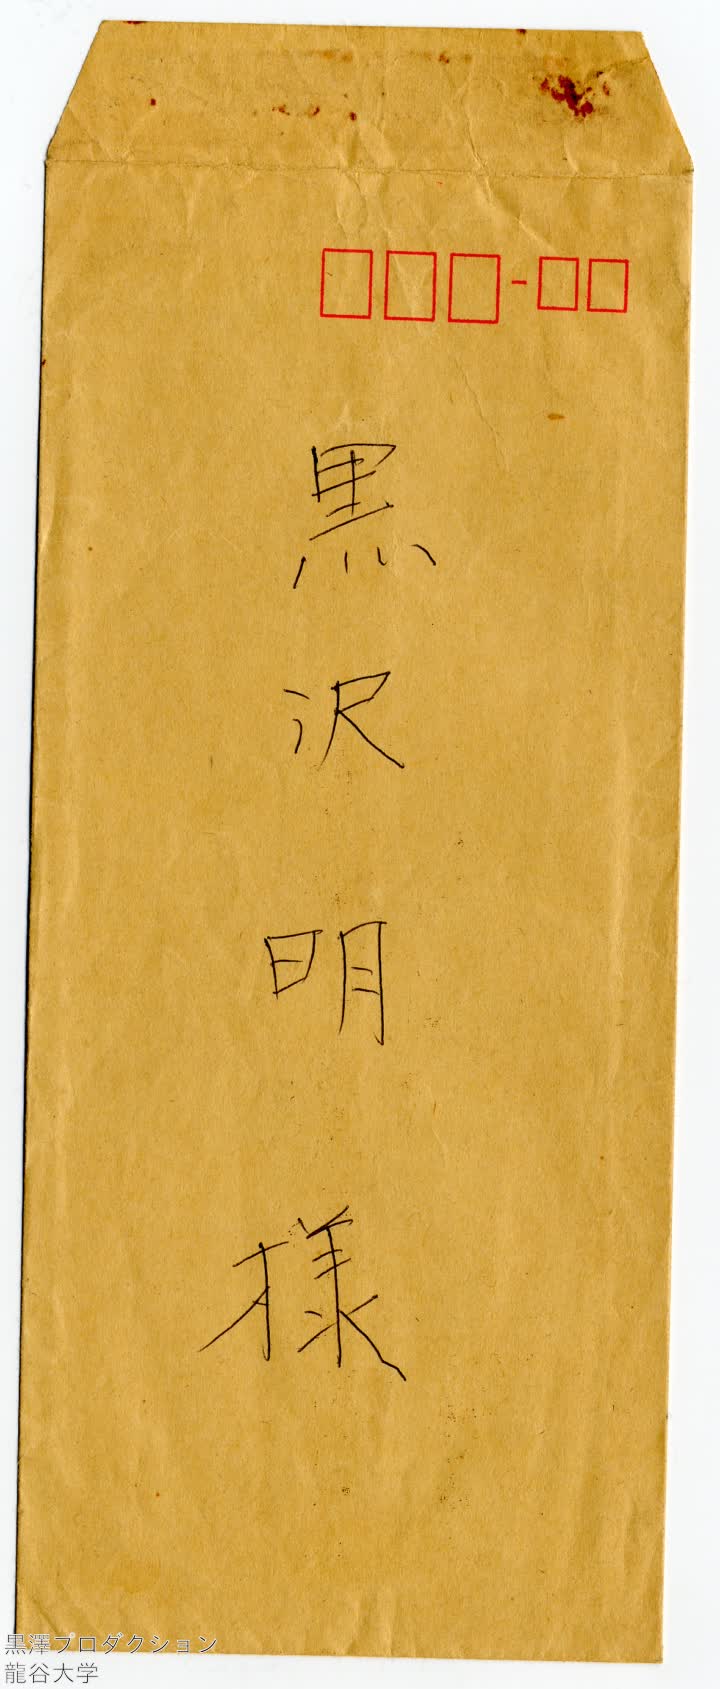 黒沢明様
黒澤プロダクション
龍谷大学